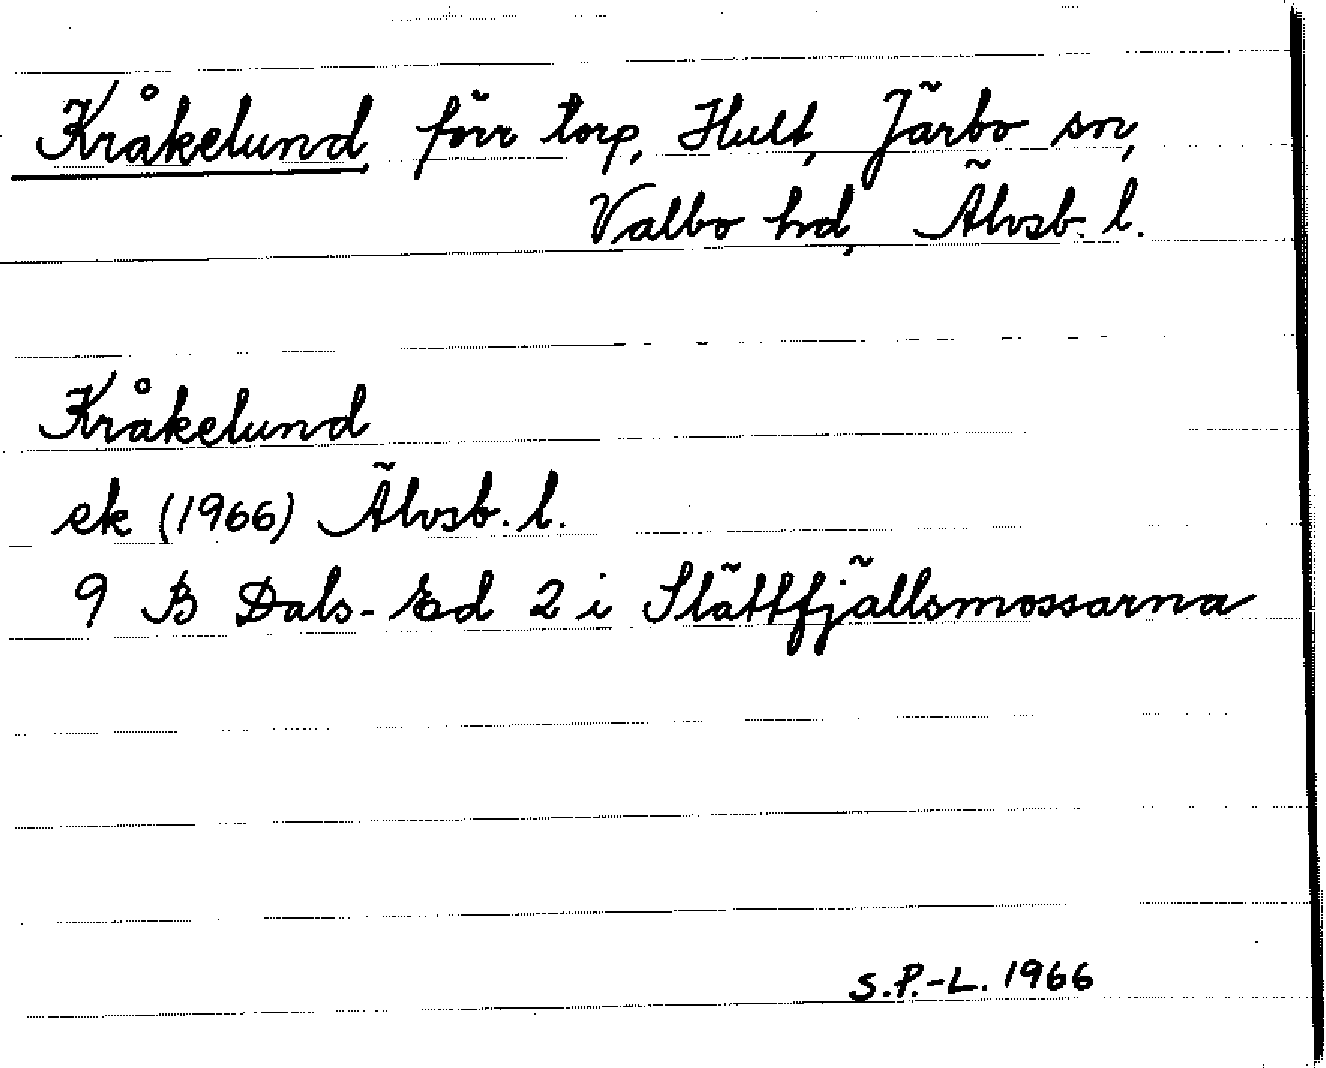 Kråkelund förr torp, Hult, Järbo sn,
Valbo hd, Älvsb. l.
Kråkelund
ek (1966) Älvsb. l.
9 B Dals-Ed 2 i Slättfjällsmossarna
S.P.-L. 1966